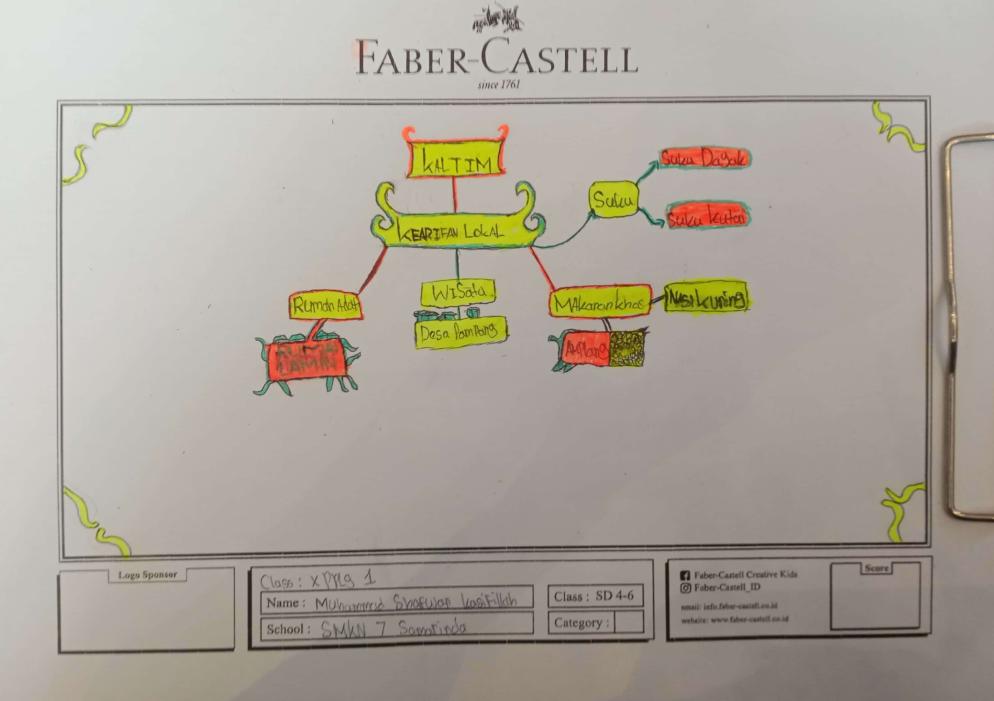 FABER-CASTELL
since 1761
KALTIM
KEARIFAN LOKAL
Suku
Suku Dayak
Suku Kutai
Rumah Adat
LAMIN
Wisata
Desa Pampang
Makanan khas
Nasi kuning
Amplang
Logo Sponsor
Class : X PPLG 1
Name : Muhammad Shafwan Kasifillah
School : SMKN 7 Samarinda
Class : SD 4-6
Category :
Faber-Castell Creative Kids
Faber-Castell_ID
email: info.faber-castell.co.id
website: www.faber-castell.co.id
Score